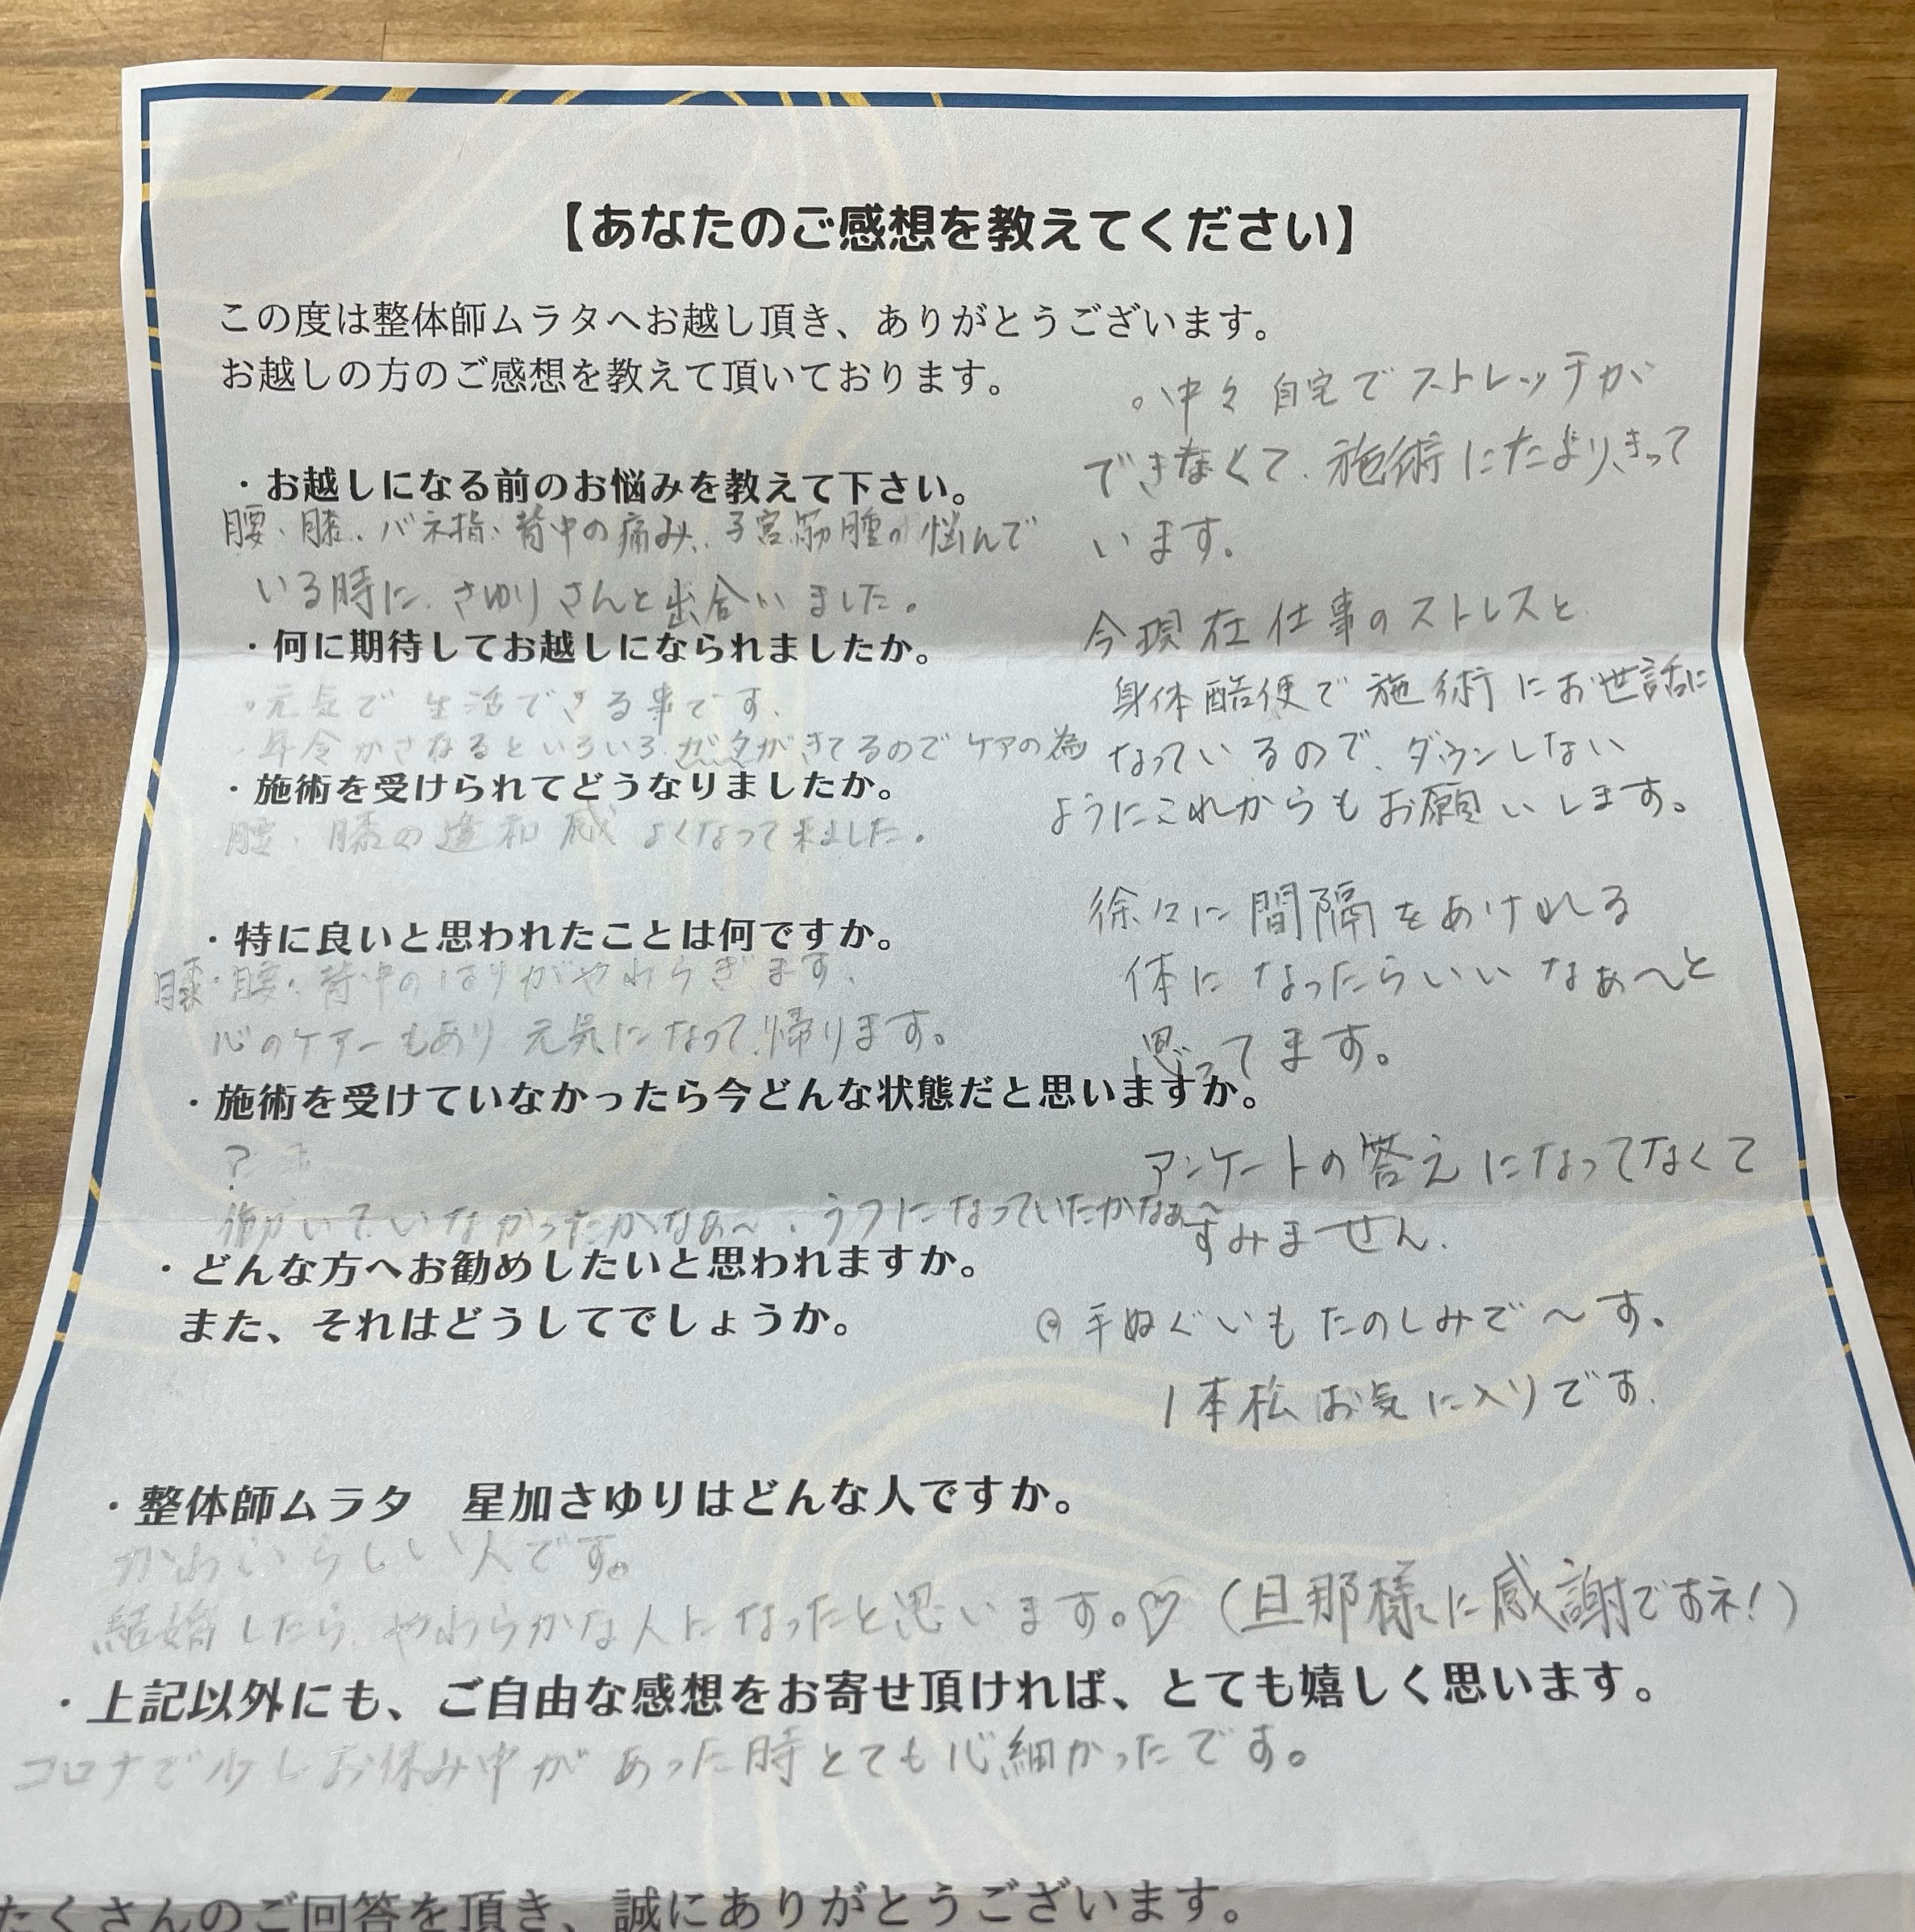 【あなたのご感想を教えてください】
この度は整体師ムラタへお越し頂き、ありがとうございます。
お越しの方のご感想を教えて頂いております。
・お越しになる前のお悩みを教えて下さい。
腰、膝、バネ指、背中の痛み、子宮筋腫の悩んで
いる時に、さゆりさんと出合いました。
・何に期待してお越しになられましたか。
・元気で生活できる事です。
・年令かさねるといろいろガタがきてるのでケアの為
・施術を受けられてどうなりましたか。
腰・膝の違和感よくなって来ました。
・特に良いと思われたことは何ですか。
膝・腰・背中のはりがやわらぎます、
心のケアーもあり元気になって帰ります。
・施術を受けていなかったら今どんな状態だと思いますか。
?
働いていなかったかなぁ〜、うつになっていたかなぁ〜
・どんな方へお勧めしたいと思われますか。
また、それはどうしてでしょうか。
。中々自宅でストレッチが
できなくて、施術にたよりきって
います。
今現在仕事のストレスと
身体酷使で施術にお世話に
なっているので、ダウンしない
ようにこれからもお願いします。
徐々に間隔をあけれる
体になったらいいなぁ〜と
思ってます。
アンケートの答えになってなくて
すみません。
手ぬぐいもたのしみで〜す。
1本松お気に入りです.
・整体師ムラタ　星加さゆりはどんな人ですか。
かわいらしい人です。
結婚したら、やわらかな人になったと思います。♡（旦那様に感謝ですネ！）
・上記以外にも、ご自由な感想をお寄せ頂ければ、とても嬉しく思います。
コロナで少しお休み中があった時とても心細かったです。
たくさんのご回答を頂き、誠にありがとうございます。